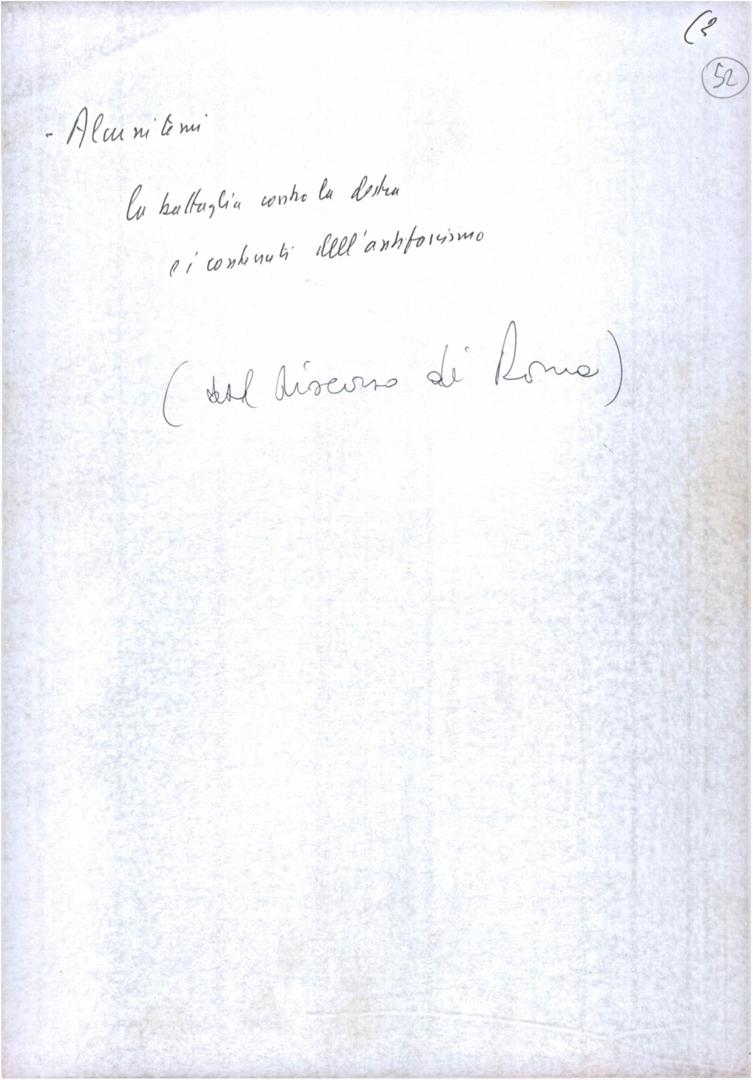 (2
52
- Alcuni temi
la battaglia contro la destra
e i contenuti dell'antifascismo
(dal discorso di Roma)